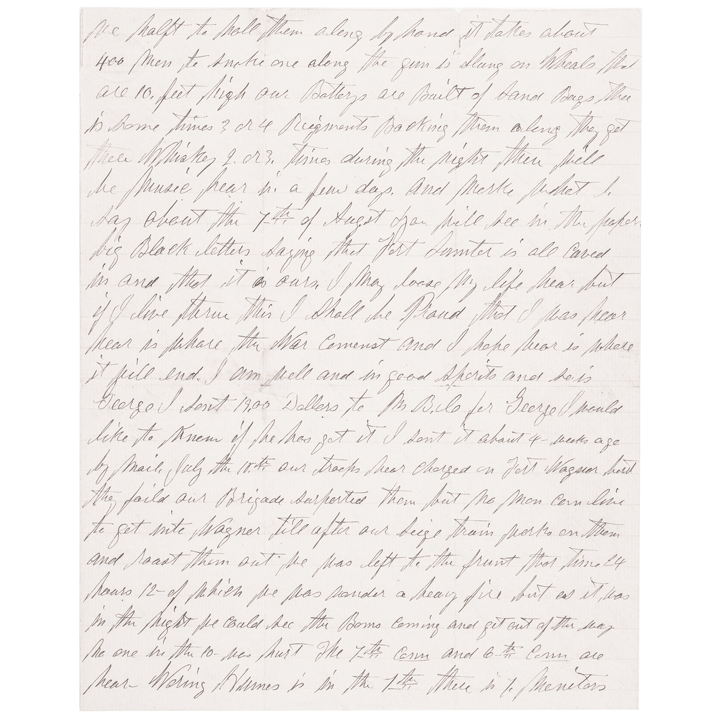 we halft to hall them along by hand it takes about
400 Men to snake one along the gun is slung on Wheals that
are 10. feet high our Batterys are Built of Sand Bags thee
is some times 3 or 4 Regments Backing them along they get
thare Whiskey 2. or 3. times during the night thare will
be Music hear in a few days. and Marke what I.
say about the 7th of August you will see in the papers.
big Black letters saying that Fort Sumter is all caved
in and that it is ours, I May loose My life hear but
if I live threw this I Shall be Proud that I was hear
hear is whare the War Comenst and I hope hear is whare
it will end. I am well and in good spirits and so is
George I sent 13.00 Dollers to Mr for George I would
like to Know if he has got it I sent it about 4 - weeks ago
by Mail, July the 10.th our troops hear charged on Fort Wagner but
they faild our Brigade surported them but no Man can live
to get into Wagner till after our seige train works on them
and roast them out, we was left to the fruunt that time 24
hours 12 - of which we was wunder a heavy fire but as it was
in the night we could see the Boms coming and get out of the way
no one in the 10 was hurt The 7.th Conn and 6th Conn are
hear - Wering Humes is in the 7.th there is 7. Monitors